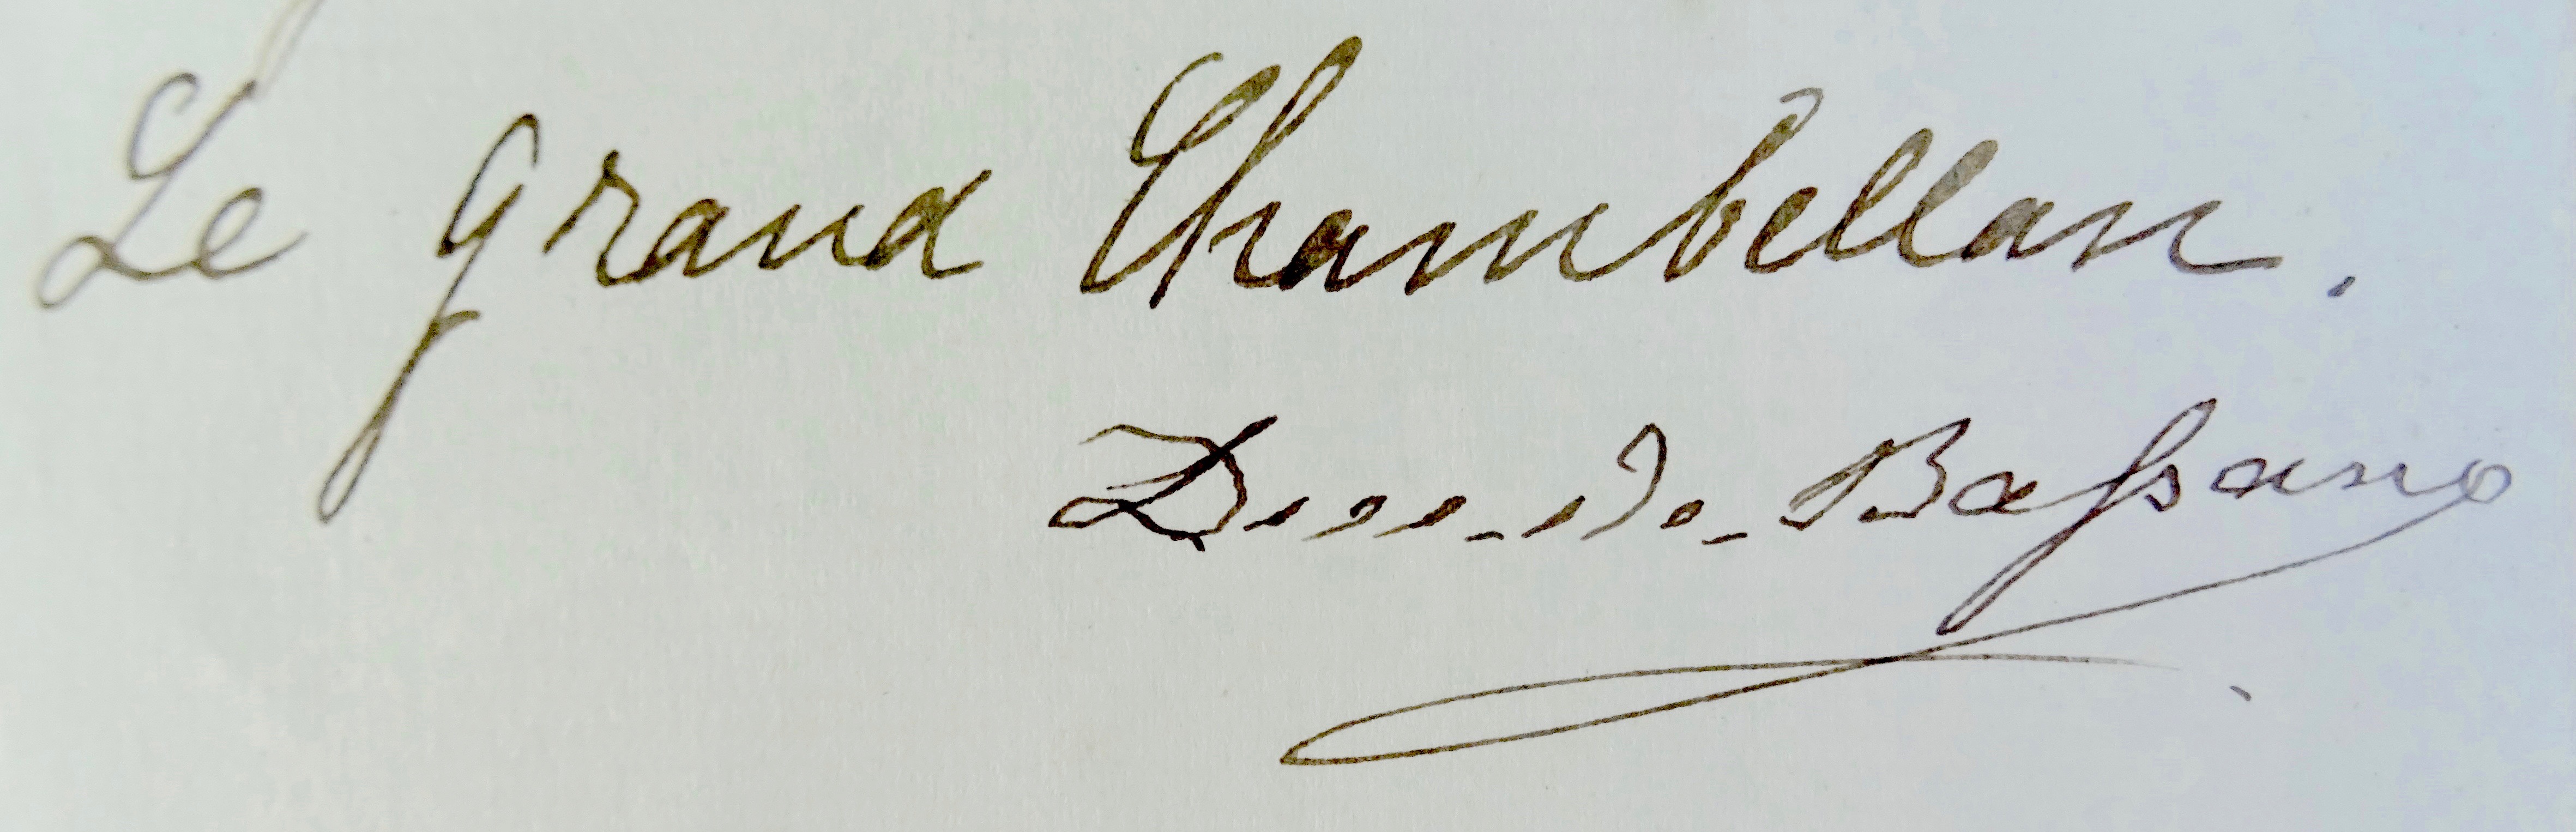 Le grand Chambellan.
Duc de Bassano